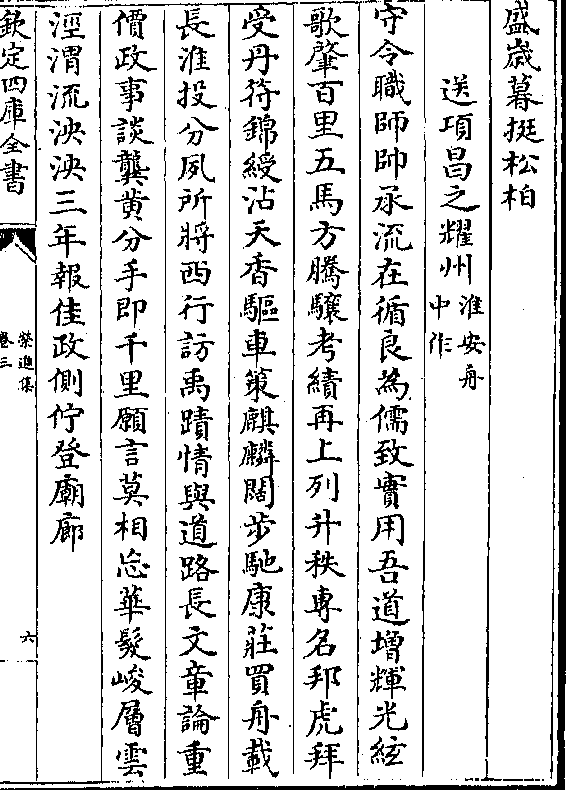 盛歲暮挺松柏
送項昌之耀州淮安舟中作
守令職師帥承流在循良為儒致實用吾道增輝光絃
歌肇百里五馬方騰驤考績再上列升秩専名邦虎拜
受丹符錦綬沾天香驅車策麒麟闊步馳康莊買舟載
長淮投分夙所將西行訪禹蹟情與道路長文章論重
價政事談龔黄分手即千里願言莫相忘華髮峻層雲
涇渭流泱泱三年報佳政側佇登廟廊
欽定四庫全書
榮進集
卷三
六